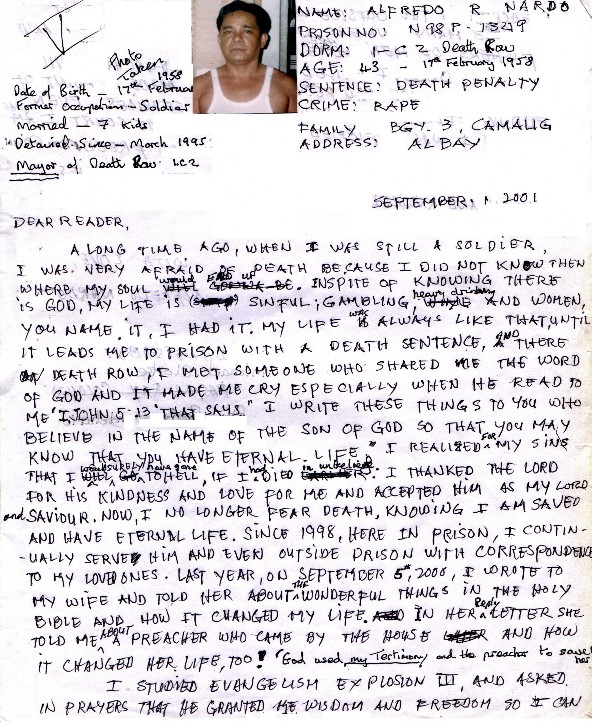 NAME: ALFREDO R. NARDO
PRISON NO: N98P-13219
DORM: 1-C2 Death Row
AGE: 43 - 17th February 1958
SENTENCE: DEATH PENALTY
CRIME: RAPE
FAMILY BGY. 3, CAMALIG
ADDRESS: ALBAY
Photo
Taken
1958
Date of Birth - 17th February
Former Occupation - Soldier
Married - 7 Kids
Detained Since - March 1995
Mayor of Death Row 1.C2
SEPTEMBER, 1 2001
DEAR READER,
A LONG TIME AGO, WHEN I WAS STILL A SOLDIER,
I WAS VERY AFRAID OF DEATH BECAUSE I DID NOT KNOW THEN
WHERE MY SOUL would END UP. INSPITE OF KNOWING THERE
IS GOD, MY LIFE IS SINFUL; GAMBLING, heavy drinking AND WOMEN,
YOU NAME IT, I HAD IT. MY LIFE WAS ALWAYS LIKE THAT, UNTIL
IT LEADS ME TO PRISON WITH A DEATH SENTENCE, AND THERE
ON DEATH ROW, I MET SOMEONE WHO SHARED ME THE WORD
OF GOD AND IT MADE ME CRY ESPECIALLY WHEN HE READ TO
ME "I JOHN 5-13 THAT SAYS" I WRITE THESE THINGS TO YOU WHO
BELIEVE IN THE NAME OF THE SON OF GOD SO THAT YOU MAY
KNOW THAT YOU HAVE ETERNAL LIFE" I REALIZED FOR MY SINS
THAT I would SURELY have gone TO HELL, IF I had DIED in unbelief. I THANKED THE LORD
FOR HIS KINDNESS AND LOVE FOR ME AND ACCEPTED HIM AS MY LORD
and SAVIOUR. NOW, I NO LONGER FEAR DEATH, KNOWING I AM SAVED
AND HAVE ETERNAL LIFE. SINCE 1998, HERE IN PRISON, I CONTIN-
UALLY SERVE HIM AND EVEN OUTSIDE PRISON WITH CORRESPONDENCE
TO MY LOVED ONES. LAST YEAR, ON SEPTEMBER 5th, 2000, I WROTE TO
MY WIFE AND TOLD HER ABOUT THE WONDERFUL THINGS IN THE HOLY
BIBLE AND HOW IT CHANGED MY LIFE. IN HER Reply LETTER SHE
TOLD ME ABOUT A PREACHER WHO CAME BY THE HOUSE AND HOW
IT CHANGED HER LIFE, TOO! God used my Testimony and the preacher to save
her
I STUDIED EVANGELISM EXPLOSION III, AND ASKED
IN PRAYERS THAT HE GRANTED ME WISDOM AND FREEDOM SO I CAN